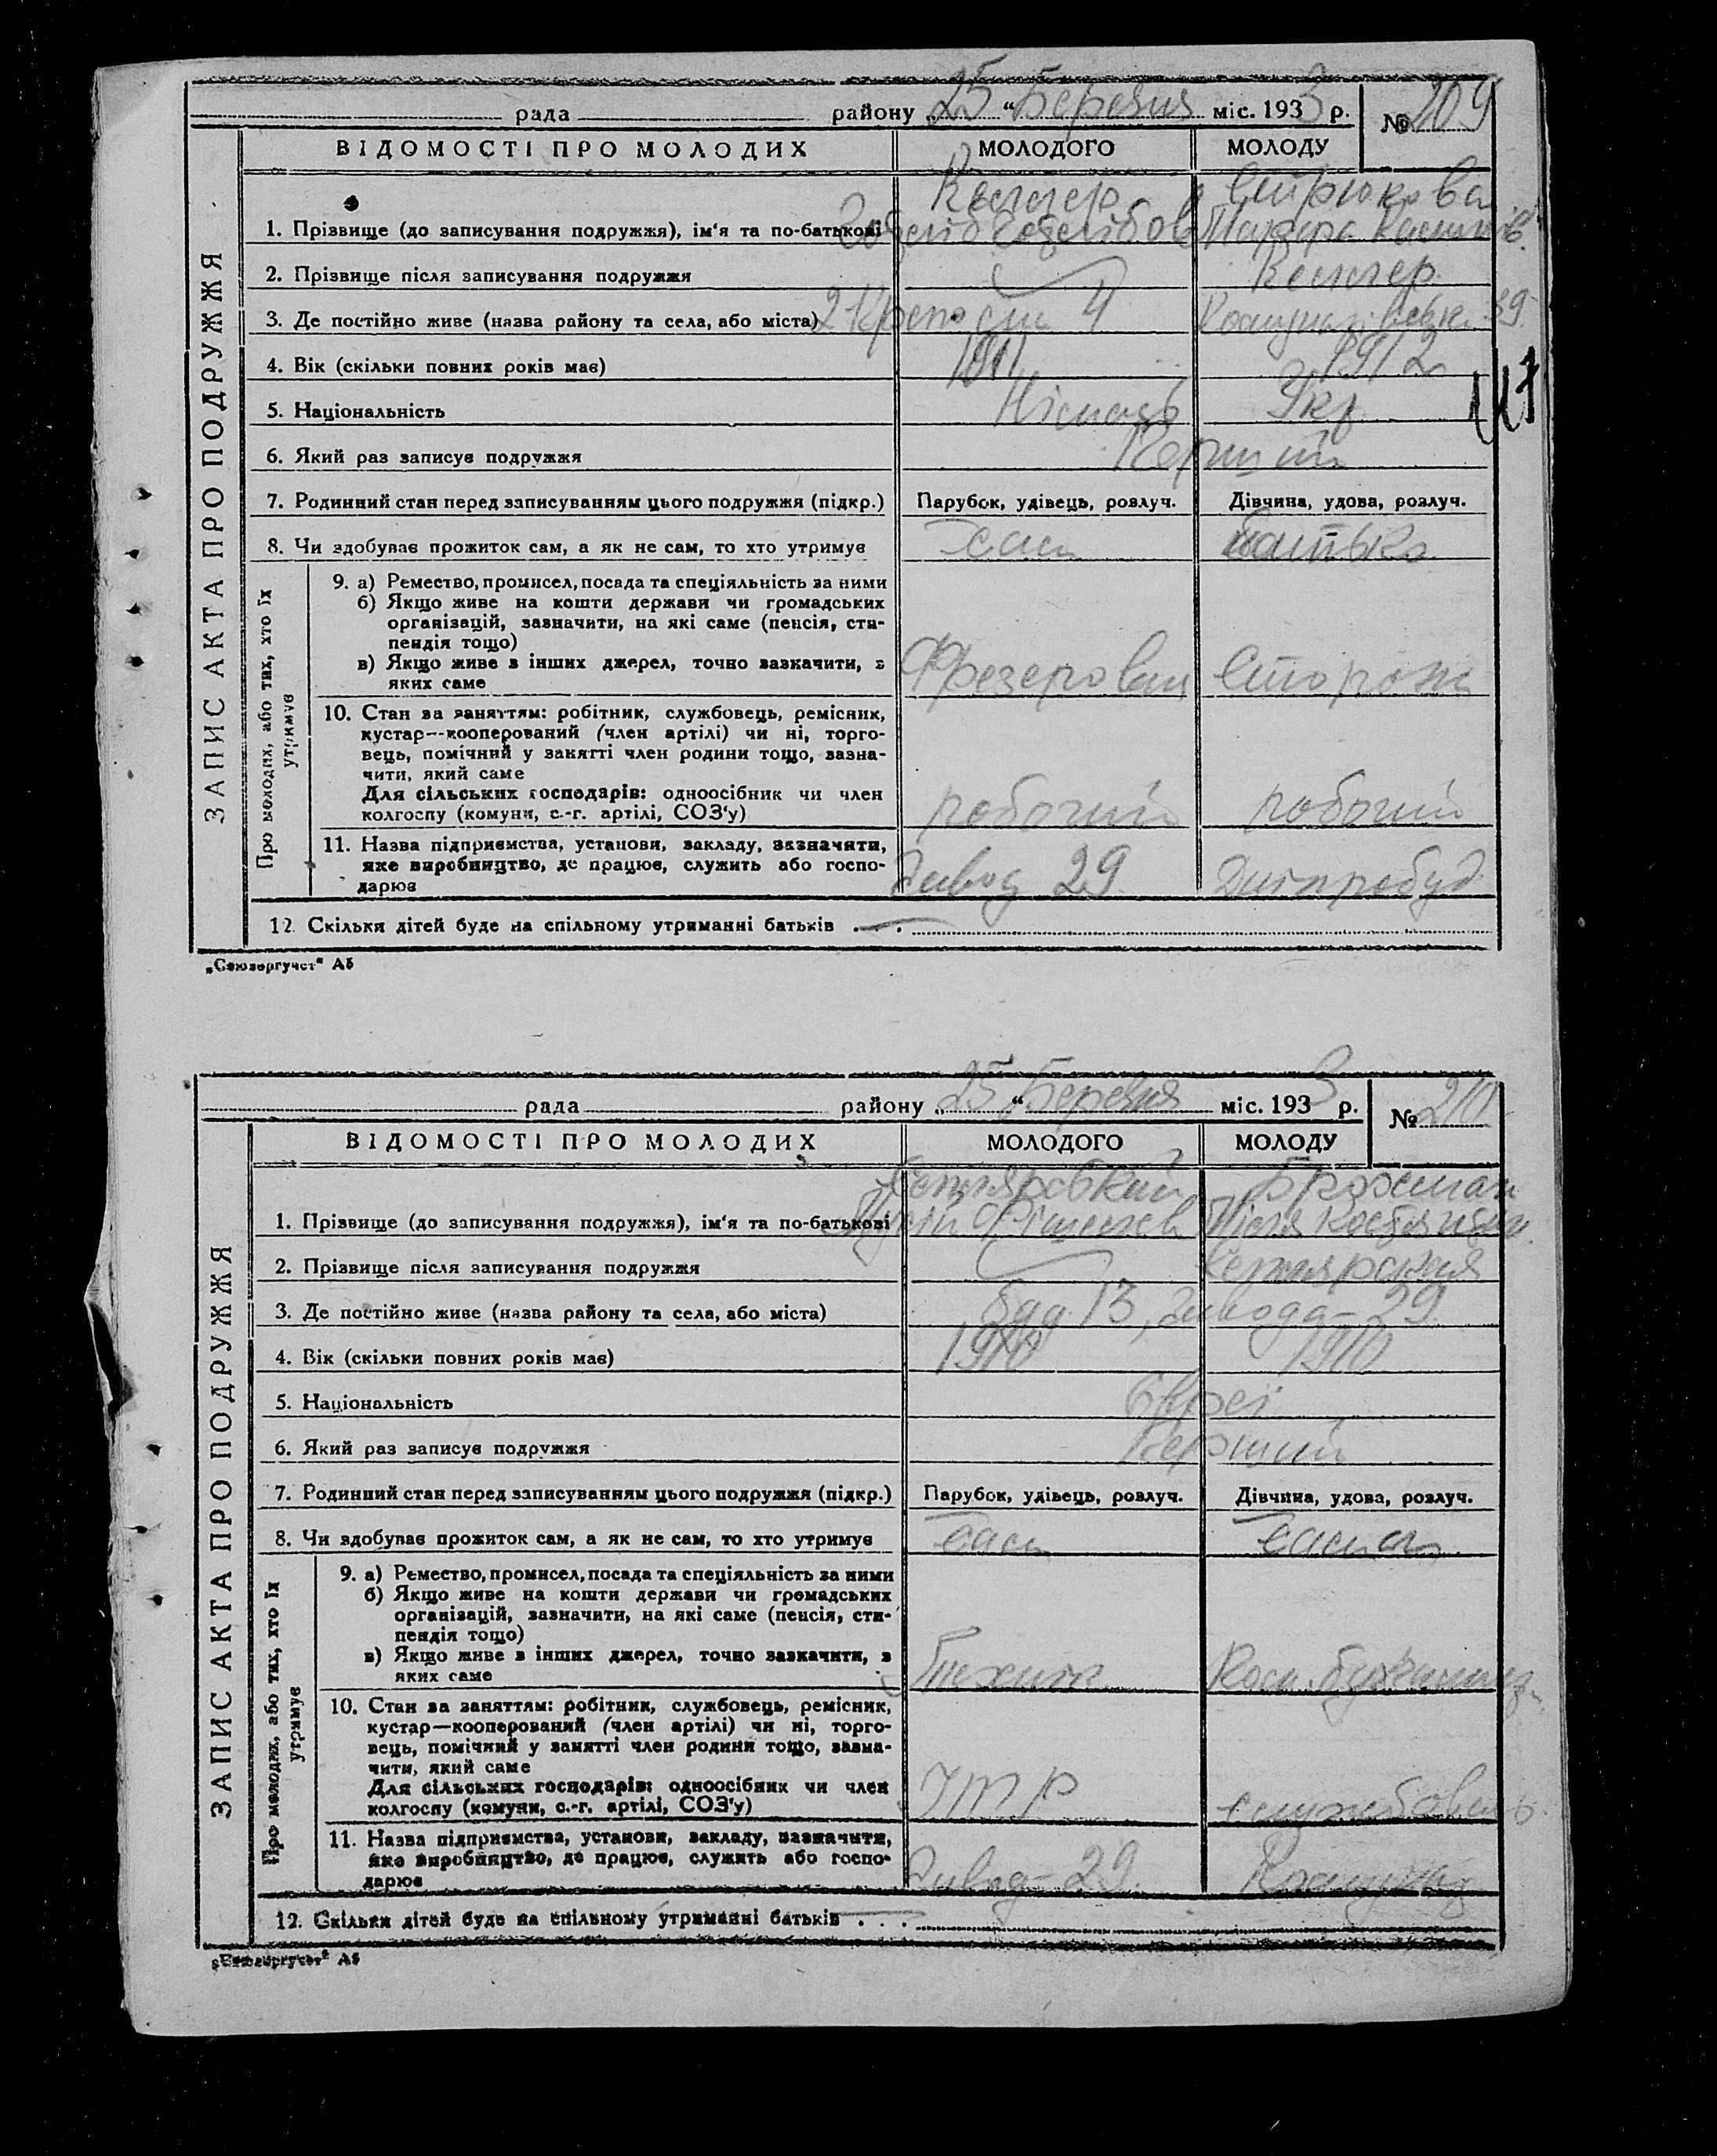 рада району „25 “ Березня міс. 1933 р. № 209
ВІДОМОСТІ ПРО МОЛОДИХ МОЛОДОГО МОЛОДУ
ЗАПИС АКТА ПРО ПОДРУЖЖЯ
Келлер Стрюкова
1. Прізвище (до записування подружжя), ім‘я та по-батькові
2. Прізвище після записування подружжя Келлер
3. Де постійно живе (назва району та села, або міста) 39
4. Вік (скільки повних років має) 1911 1912
5. Національність Німець Укр
6. Який раз записує подружжя Перший
7. Родинний стан перед записуванням цього подружжя (підкр.) Парубок, удівець, розлуч. Дівчина, удова, розлуч.
8. Чи здобуває прожиток сам, а як не сам, то хто утримує сам батько
Про молодих, або тих, хто їх утримує
9. а) Ремество, промисел, посада та спеціяльність за ними
б) Якщо живе на кошти держави чи громадських
організацій, зазначити, на які саме (пенсія, сти-
пендія тощо)
в) Якщо живе з інших джерел, точно зазначити, з
яких саме Сторож
10. Стан за заняттям: робітник, службовець, ремісник,
кустар—кооперований (член артілі) чи ні, торго-
вець, помічний у занятті член родини тощо, зазна-
чити, який саме
Для сільських господарів: одноосібник чи член
колгоспу (комуни, с.-г. артілі, СОЗ‘у) робочий робочий
11. Назва підприємства, установи, закладу, зазначити,
яке виробництво, де працює, служить або госпо-
дарює Завод 29 Дніпробуд
12. Скільки дітей буде на спільному утриманні батьків —
„Союзоргучет“ А5
рада району „25 “ Березня міс. 1933 р. № 210
ВІДОМОСТІ ПРО МОЛОДИХ МОЛОДОГО МОЛОДУ
ЗАПИС АКТА ПРО ПОДРУЖЖЯ
1. Прізвище (до записування подружжя), ім‘я та по-батькові
2. Прізвище після записування подружжя
3. Де постійно живе (назва району та села, або міста) буд. 13, завода-29
4. Вік (скільки повних років має) 1910 1910
5. Національність Євреї
6. Який раз записує подружжя Перший
7. Родинний стан перед записуванням цього подружжя (підкр.) Парубок, удівець, розлуч. Дівчина, удова, розлуч.
8. Чи здобуває прожиток сам, а як не сам, то хто утримує сам сама
Про молодих, або тих, хто їх утримує
9. а) Ремество, промисел, посада та спеціяльність за ними
б) Якщо живе на кошти держави чи громадських
організацій, зазначити, на які саме (пенсія, сти-
пендія тощо)
в) Якщо живе з інших джерел, точно зазначити, з
яких саме Технік
10. Стан за заняттям: робітник, службовець, ремісник,
кустар—кооперований (член артілі) чи ні, торго-
вець, помічний у занятті член родини тощо, зазна-
чити, який саме
Для сільських господарів: одноосібник чи член
колгоспу (комуни, с.-г. артілі, СОЗ‘у) ІТР службовець
11. Назва підприємства, установи, закладу, зазначити,
яке виробництво, де працює, служить або госпо-
дарює Завод-29
12. Скільки дітей буде на спільному утриманні батьків
„Союзоргучет“ А5